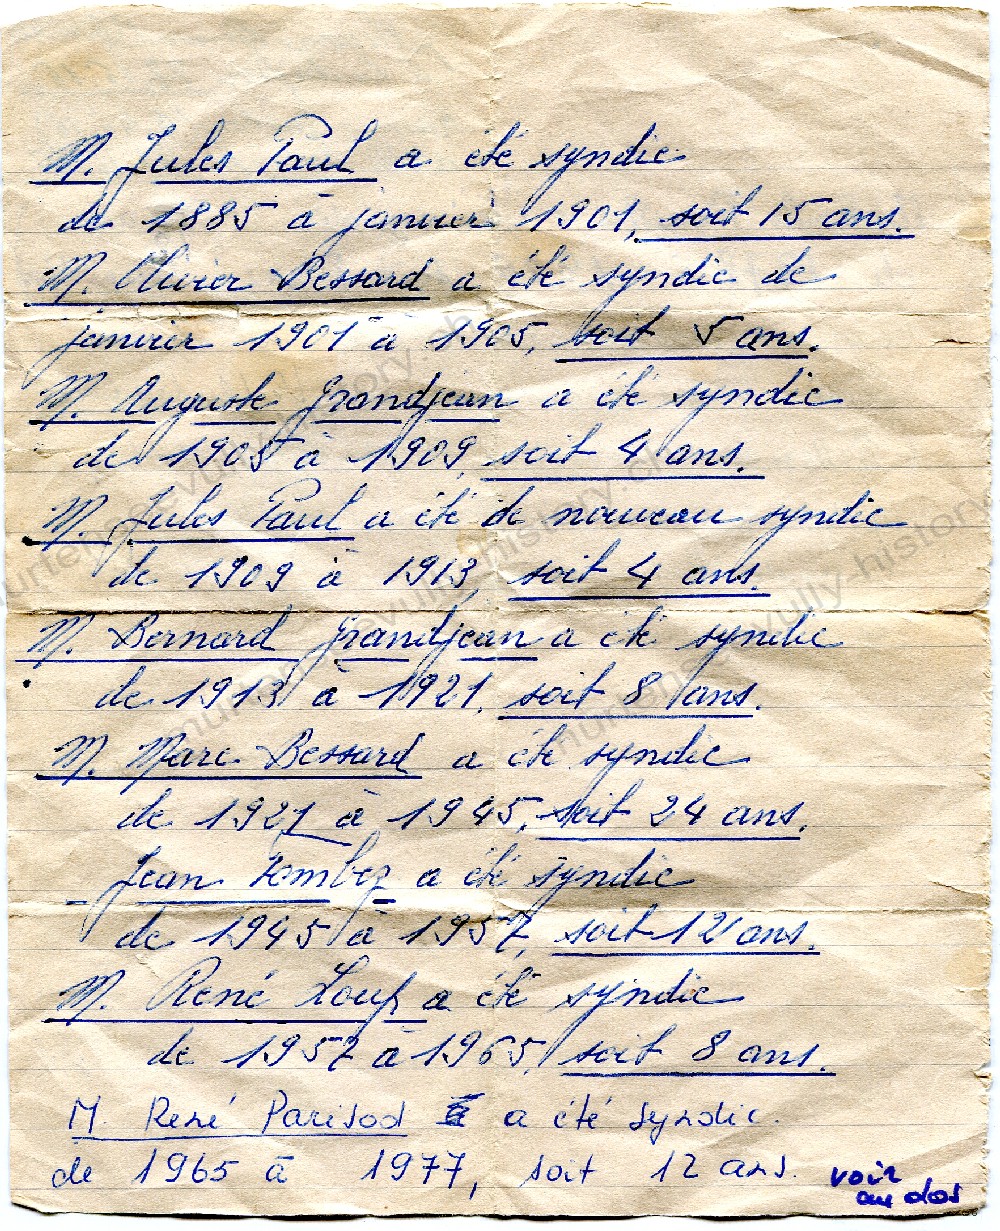 M. Jules Paul a été syndic
de 1885 à janvier 1901, soit 15 ans.
M. Olivier Bessard a été syndic de
janvier 1901 à 1905, soit 5 ans.
M. Auguste Grandjean a été syndic
de 1905 à 1909, soit 4 ans.
M. Jules Paul a été de nouveau syndic
de 1909 à 1913, soit 4 ans.
M. Bernard Grandjean a été syndic
de 1913 à 1921, soit 8 ans.
M. Marc Bessard a été syndic
de 1921 à 1945, soit 24 ans.
Jean a été syndic
de 1945 à 1957, soit 12 ans.
M. René Loup a été syndic
de 1957 à 1965, soit 8 ans.
M. René Parisod a été syndic.
de 1965 à 1977, soit 12 ans.
voir
au dos